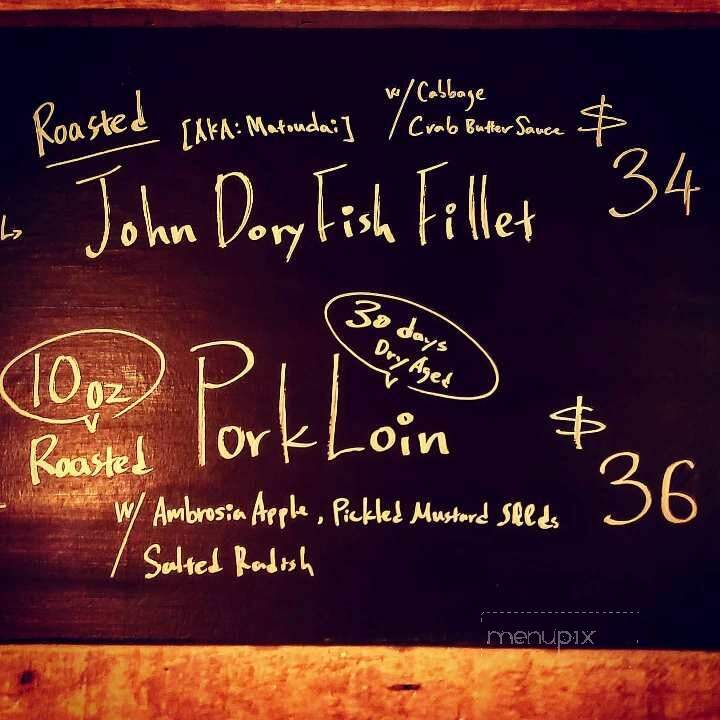 Roasted [AKA: Matoudai] w/ Cabbage
/ Crab Butter Sauce $
34
John Dory Fish Fillet
30 days
Dry Aged
10 oz
Roasted
Pork Loin
$
36
w/ Ambrosia Apple, Pickled Mustard Seeds
Salted Radish
menupix